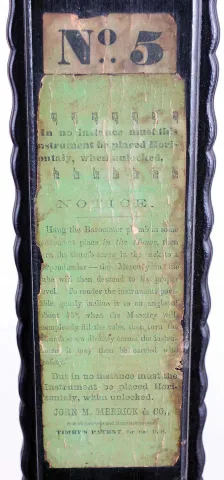 No. 5
In no instance must this
instrument be placed Hori-
ontaly, when unlocked.
NOTICE.
Hang the Barometer in some
place in the house, then
turn the screw in the back to a
perpendicular — the Mercury in the
tube will then descend to its proper
level. To render the instrument port-
able gently incline it to an angle of
about 45°, when the Mercury will
completely fill the tube, then turn the
screw
it may then be carried with
safety.
But in no instance must the
Instrument be placed Hori-
zontaly, when unlocked.
JOHN M. MERRICK & CO.,
TIMBY'S PATENT, for the U.S.